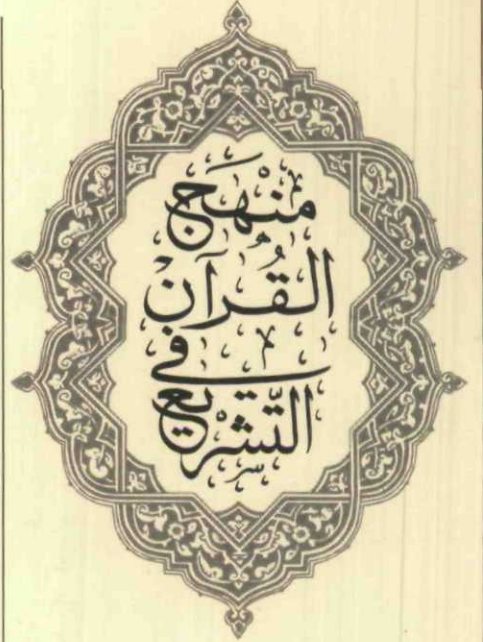 منهج
القرآن
في
التشريع